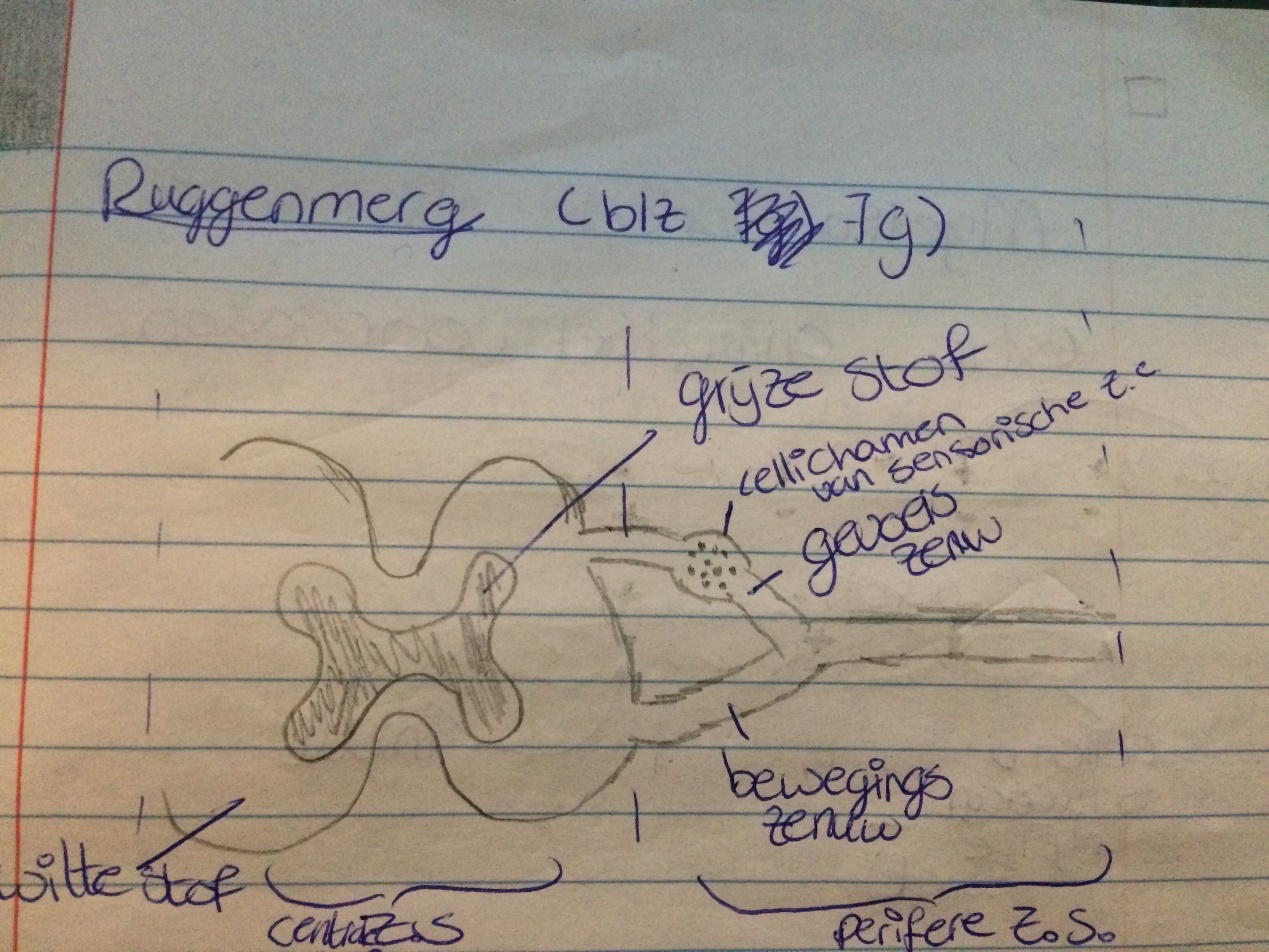 Ruggenmerg (blz 79)
grijze stof
cellichamen
van sensorische z.c.
gevoels
zenuw
bewegings
zenuw
witte stof
centrale z.s
perifere z.s.